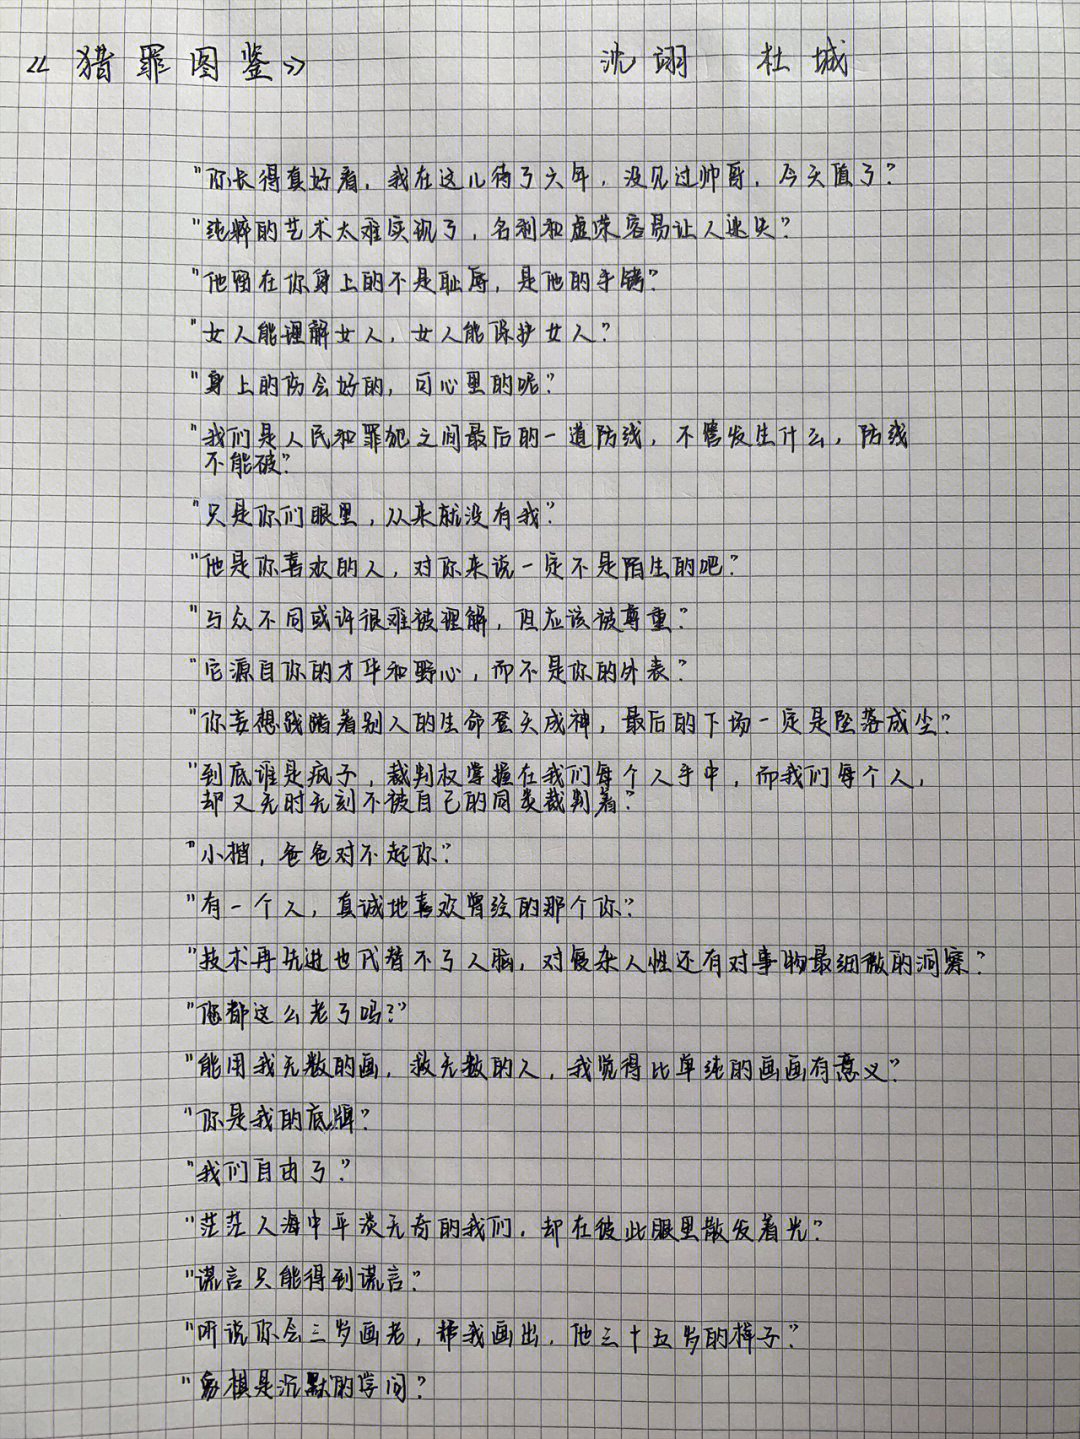 《猎罪图鉴》 沈翊 杜城
"你长得真好看，我在这儿待了六年，没见过帅哥，今天值了"
"纯粹的艺术太难实现了，名利和虚荣容易让人迷失"
"他留在你身上的不是耻辱，是他的手铐"
"女人能理解女人，女人能保护女人"
"身上的伤会好的，可心里的呢"
"我们是人民和罪犯之间最后的一道防线，不管发生什么，防线
不能破"
"只是你们眼里，从来就没有我"
"他是你喜欢的人，对你来说一定不是陌生的吧"
"与众不同或许很难被理解，但应该被尊重"
"它源自你的才华和野心，而不是你的外表"
"你妄想践踏着别人的生命登天成神，最后的下场一定是坠落成尘"
"到底谁是疯子，裁判权掌握在我们每个人手中，而我们每个人，
却又无时无刻不被自己的同类裁判着"
"小楷，爸爸对不起你"
"有一个人，真诚地喜欢曾经的那个你"
"技术再先进也代替不了人脑，对复杂人性还有对事物最细微的洞察"
"您都这么老了吗？"
"能用我无数的画，救无数的人，我觉得比单纯的画画有意义"
"你是我的底牌"
"我们自由了"
"茫茫人海中平淡无奇的我们，却在彼此眼里散发着光"
"谎言只能得到谎言"
"听说你会三岁画老，帮我画出，他三十五岁的样子"
"象棋是沉默的学问"